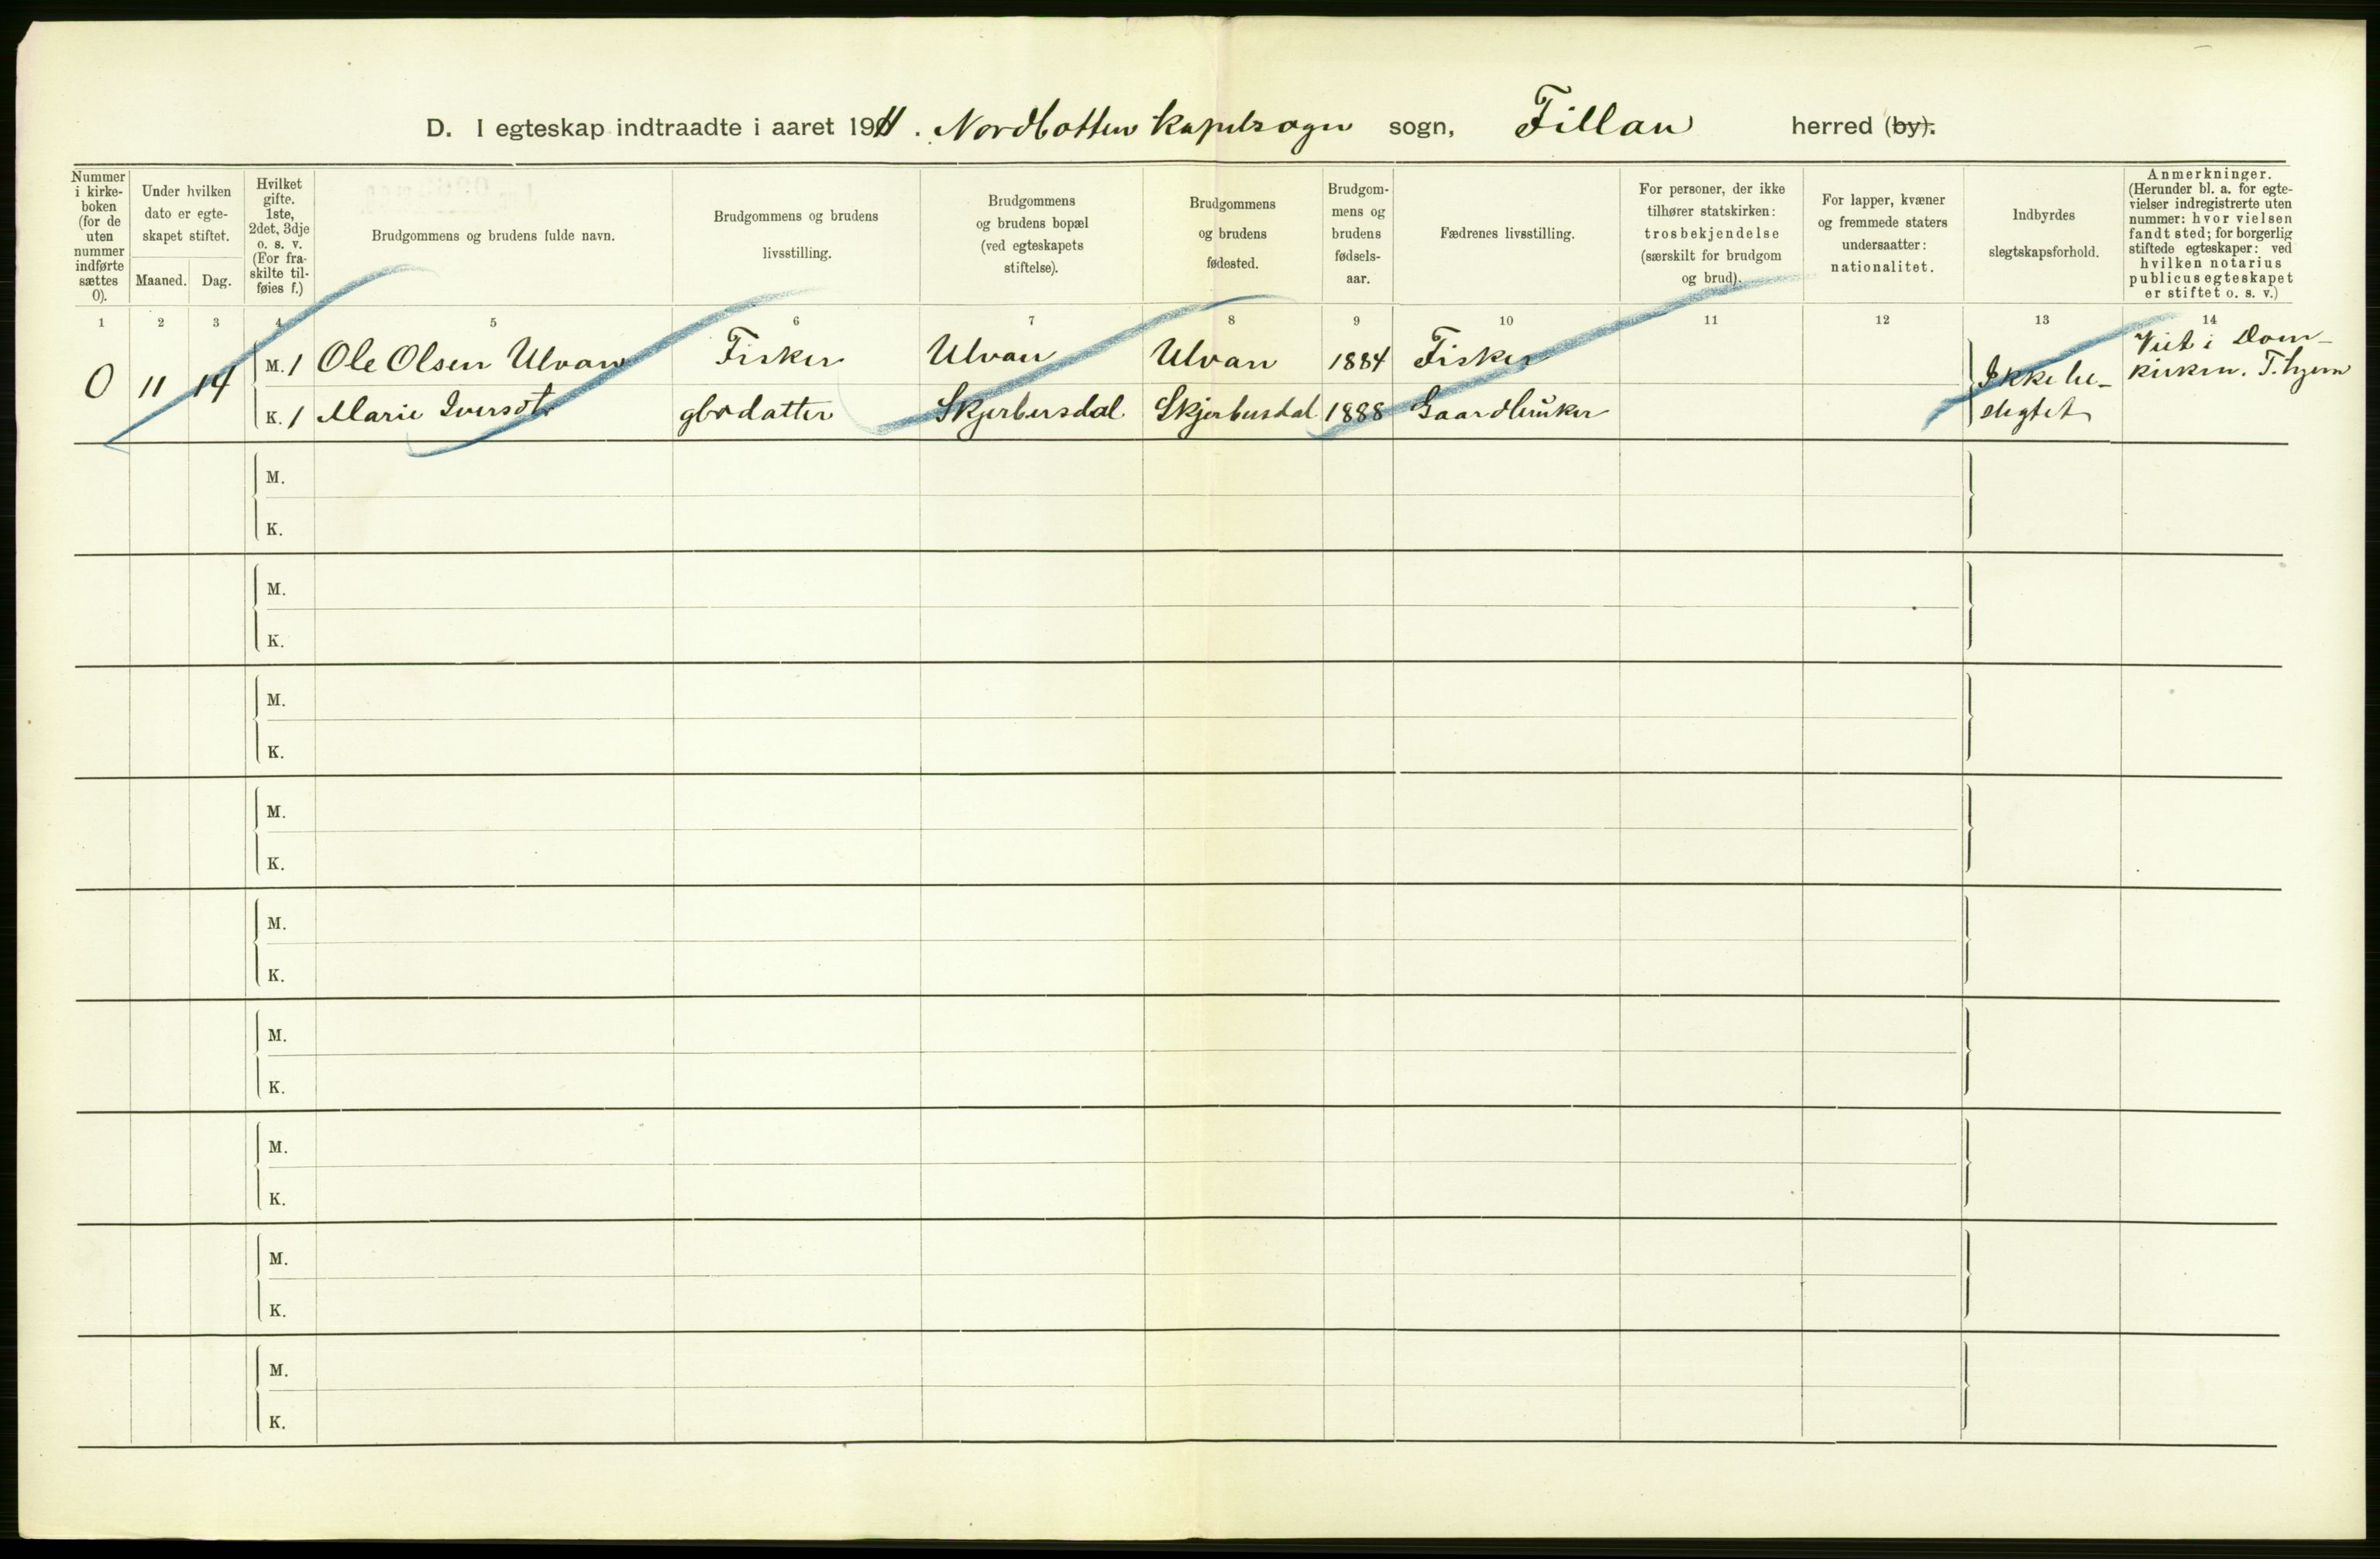 D. I egteskap indtraadte i aaret 1911. Nordbotten kapelsogn sogn, Fillan herred (by).
Nummer
i kirke-
boken
(for de
uten
nummer
indførte
sættes
0).
Under hvilken
dato er egte-
skapet stiftet.
Maaned. Dag.
Hvilket
gifte.
1ste,
2det, 3dje
o. s. v.
(For fra-
skilte til-
føies f.)
Brudgommens og brudens fulde navn.
Brudgommens og brudens
livsstilling.
Brudgommens
og brudens bopæl
(ved egteskapets
stiftelse).
Brudgommens
og brudens
fødested.
Brudgom-
mens og
brudens
fødsels-
aar.
Fædrenes livsstilling.
For personer, der ikke
tilhører statskirken:
trosbekjendelse
(særskilt for brudgom
og brud).
For lapper, kvæner
og fremmede staters
undersaatter:
nationalitet.
Indbyrdes
slegtskapsforhold.
Anmerkninger.
(Herunder bl. a. for egte-
vielser indregistrerte uten
nummer: hvor vielsen
fandt sted; for borgerlig
stiftede egteskaper: ved
hvilken notarius
publicus egteskapet
er stiftet o. s. v.)
1 2 3 4 5 6 7 8 9 10 11 12 13 14
0 11 14
M. 1 Ole Olsen Ulvan Fisker Ulvan Ulvan 1884 Fisker
K. 1 Marie Iversdtr gbrdatter Skjerbersdal Skjerbusdal 1888 Gaardbruker
Ikke be-
slegtet
Viet i Dom-
kirken. T.hjem
M.
K.
M.
K.
M.
K.
M.
K.
M.
K.
M.
K.
M.
K.
M.
K.
M.
K.